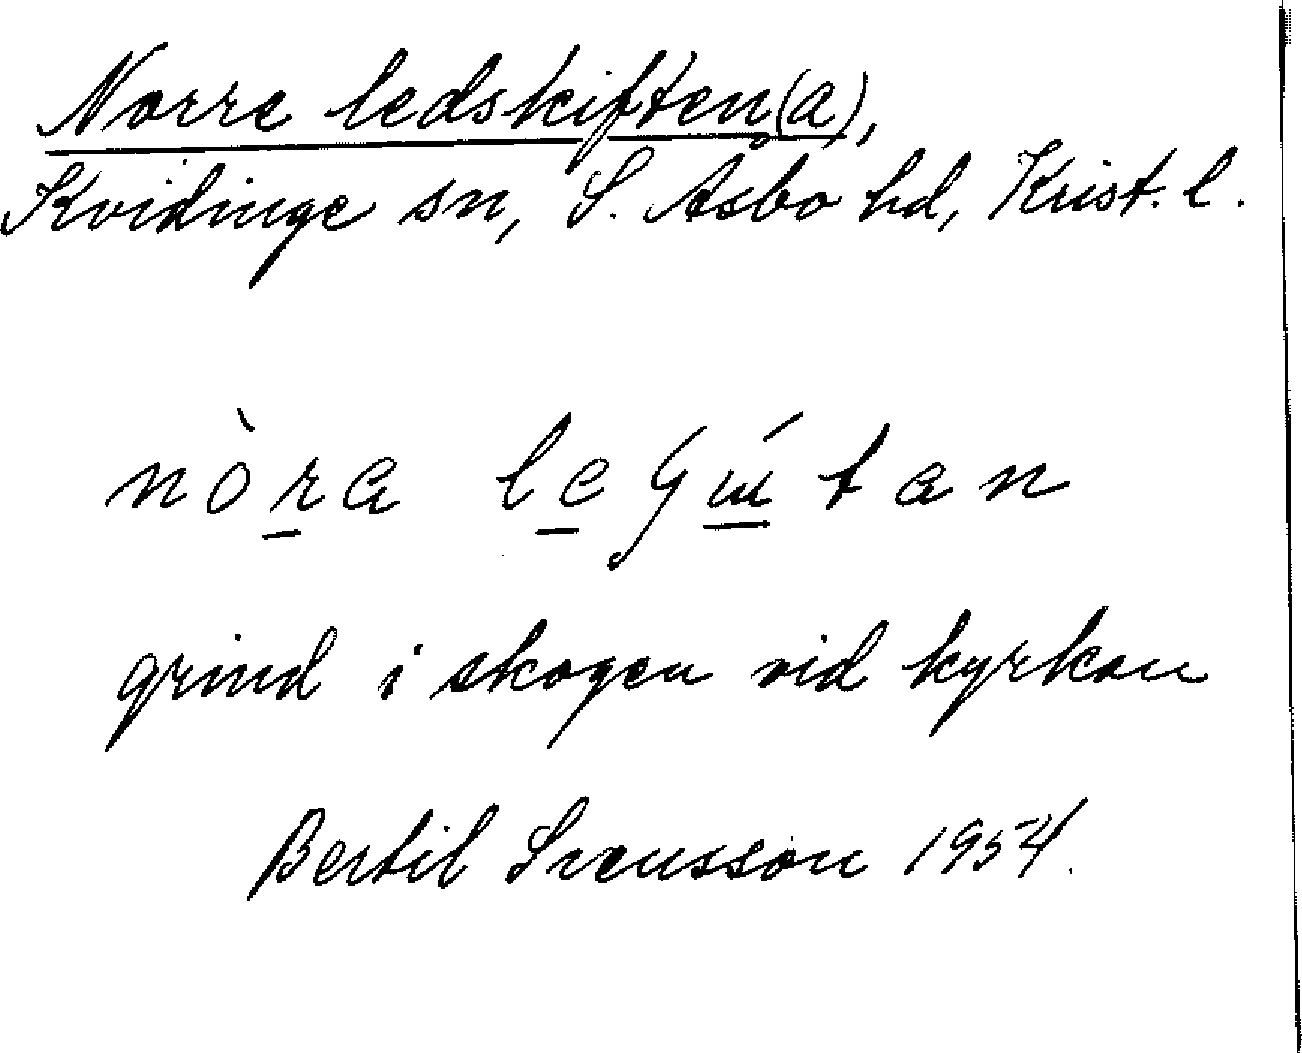 Norre ledskiften(a),
Kvidinge sn, S. Åsbo hd, Krist. l.
nòra
grind i skogen vid kyrkan
Bertil Svensson 1954.